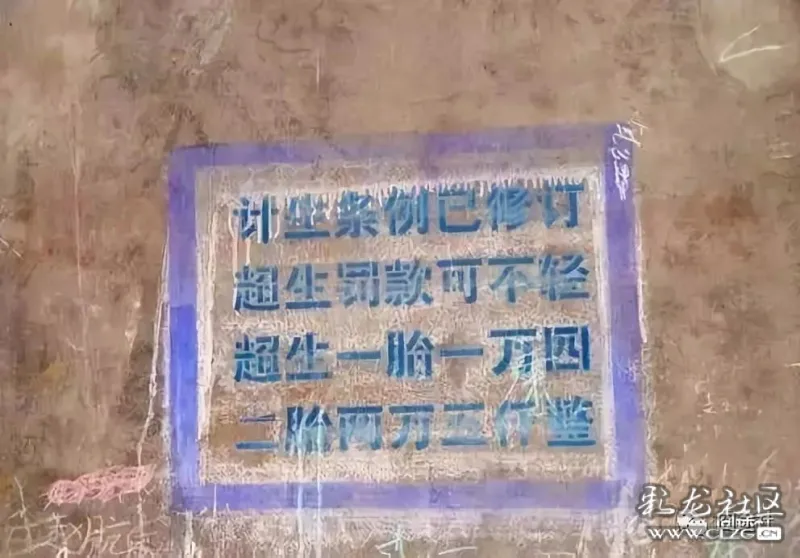 计生条例已修订
超生罚款可不轻
超生一胎一万四
二胎两万五仟整
化龙社区
CLZG CN